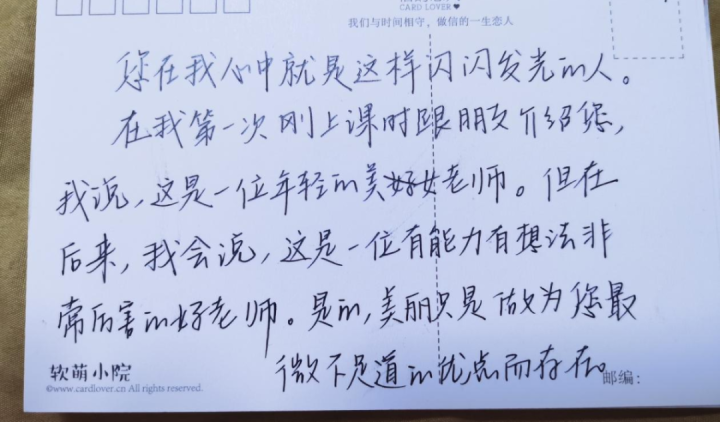 CARD LOVER♥
我们与时间相守，做信的一生恋人
您在我心中就是这样闪闪发光的人。
在我第一次刚上课时跟朋友介绍您，
我说，这是一位年轻的美女老师。但在
后来，我会说，这是一位有能力有想法非
常厉害的好老师。是的，美丽只是做为您最
微不足道的优点而存在。
软萌小院
©www.cardlover.cn All rights reserved.
邮编：